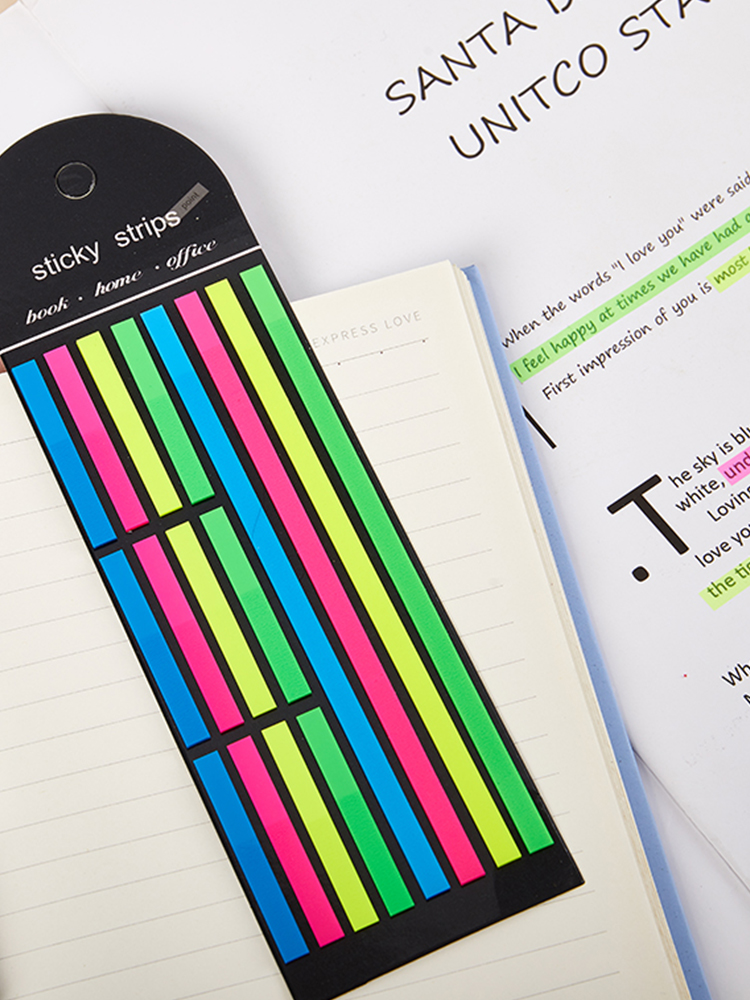 SANTA
UNITCO STA
sticky strips
point
book · home · office
EXPRESS LOVE
when the words "I love you" were said
I feel happy at times we have had
First impression of you is most
The sky is blu
white, und
Lovin
love yo
the tie
Wh